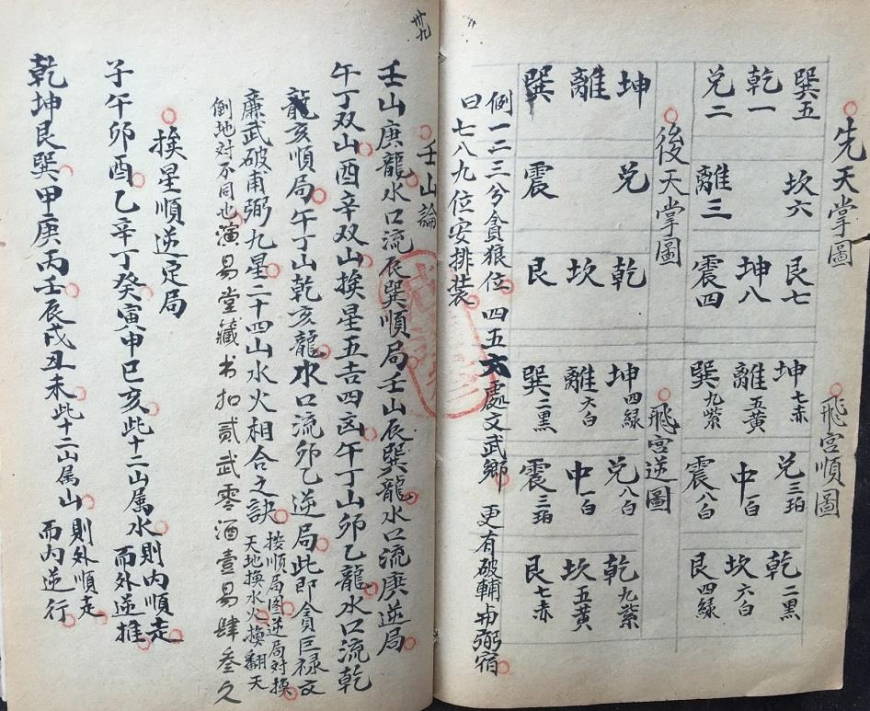 先天掌圖
巽五 坎六 艮七
乾一 坤八
兌二 離三 震四
後天掌圖
坤 兌 乾
離 坎
巽 震 艮
飛宮順圖
坤七赤 兌三珀 乾二黒
離五黄 中一白 坎六白
巽九紫 震八白 艮四緑
飛宮逆圖
坤四緑 兌八白 乾九紫
離六白 中一白 坎五黄
巽二黒 震三珀 艮七赤
例一二三兮貪狼位 四五六處文武鄉 更有破輔与弼宿
曰七八九位安排装
卅九
壬山論
壬山庚龍水口流辰巽順局壬山辰巽龍水口流庚逆局
午丁双山酉辛双山挨星五吉四凶午丁山卯乙龍水口流乾
龍亥順局午丁山乾亥龍水口流卯乙逆局此即貪巨禄文
廉武破甫弼九星二十四山水火相合之訣 按順局圖逆局对换
天地换水火换翻天
倒地对不同也 演易堂藏书扣贰武零酒壹易肆叁久
挨星順逆定局
子午卯酉乙辛丁癸寅申巳亥此十二山属水 則内順走
而外逆推
乾坤艮巽甲庚丙壬辰戌丑未此十二山属山 則外順走
而内逆行